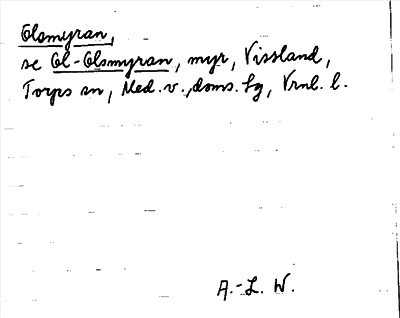 Olsmyran,
se Ol-Olsmyran, myr, Vissland,
Torps sn, Med. v., doms. hg, Vrnl. l.
A.-L. W.